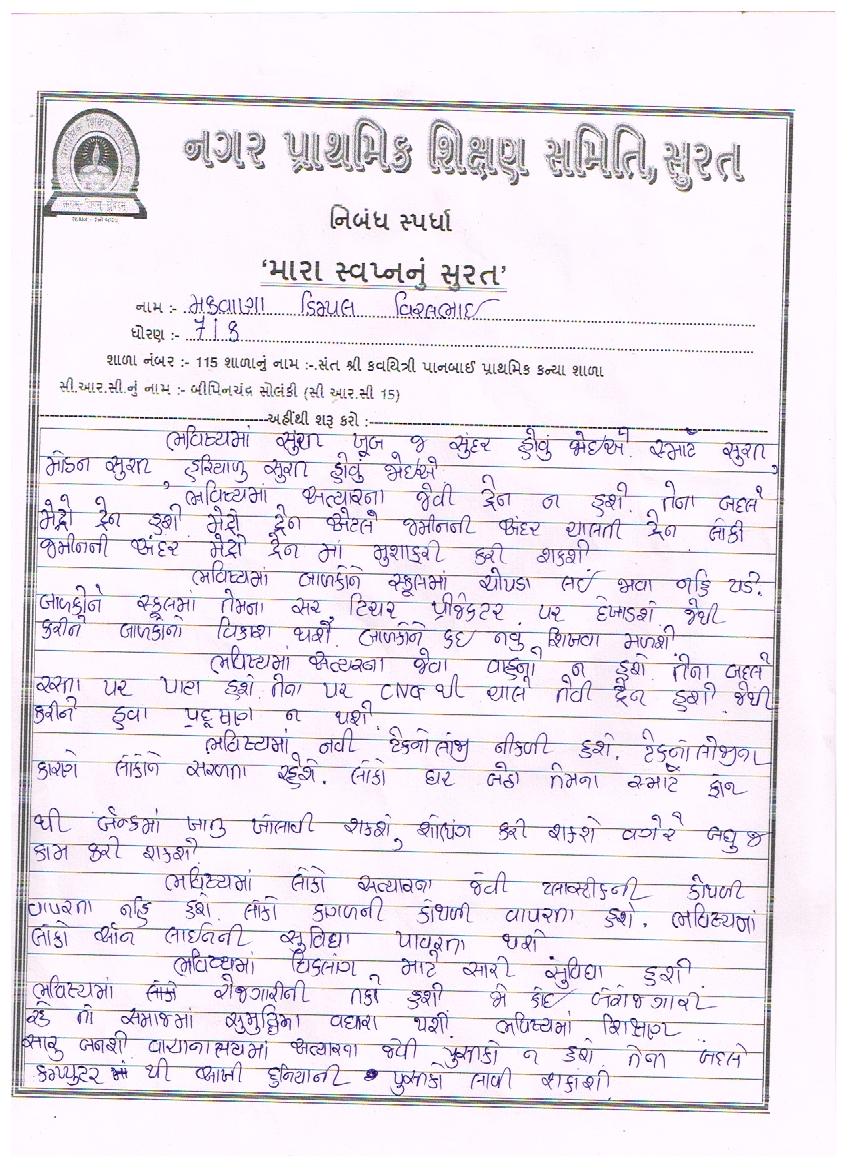 નગર પ્રાથમિક શિક્ષણ સમિતિ,સુરત
નિબંધ સ્પર્ધા
‘મારા સ્વપ્નનું સુરત’
નામ :- મકવાણા ડિમ્પલ વિરલભાઇ
ધોરણ :- 7/ક
શાળા નંબર :- 115 શાળાનું નામ :-.સંત શ્રી કવયિત્રી પાનબાઈ પ્રાથમિક કન્યા શાળા
સી.આર.સી.નું નામ :- બીપિનચંદ્ર સોલંકી (સી આર.સી 15)
અહીંથી શરૂ કરો :
ભવિષ્યમાં સુરત ખૂબ જ સુંદર હોવું જોઇએ. સ્માર્ટ સુરત,
મોડન સુરત, હરિયાળુ સુરત હોવું જોઇએ
ભવિષ્યમાં અત્યારના જેવી ટ્રેન ન હશે. તેના બદલે
મેટ્રો ટ્રેન હશે મેટ્રો ટ્રેન એટલે જમીનની અંદર ચાલતી ટ્રેન લોકો
જમીનની અંદર મેટ્રો ટ્રેન માં મુશાફરી કરી શકશે
ભવિષ્યમાં બાળકોને સ્કૂલમાં ચોપડા લઇ જવા નહિ પડે.
બાળકોને સ્કૂલમાં તેમના સર, ટિચર પ્રોજેકટર પર દેખાડશે જેથી
કરીને બાળકોનો વિકાશ થશે. બાળકોને કઇ નવુ શિખવા મળશે
ભવિષ્યમાં અત્યારના જેવા વાહનો ન હશે. તેના બદલે
રસ્તા પર પાટા હશે. તેના પર CNG થી ચાલે તેવી ટ્રેન હશે જેથી
કરીને હવા પ્રદૂષાણ ન થશે
ભવિષ્યમાં નવી ટેકનોલોજી નીકળી હશે. ટેકનોલોજીના
કારણે લોકોને સરળતા રહેશે. લોકો ઘરે બેઠા તેમના સ્માર્ટ ફોન
થી બેન્કમાં ખાતુ ખોલાવી શકશે, શોપિંગ કરી શકશે વગેરે બધુ જ
કામ કરી શકશે
ભવિષ્યમાં લોકો અત્યારના જેવી પ્લાસ્ટીકની કોથળી
વાપરતા નહિ હશે. લોકો કાગળની કોથળી વાપરતા હશે. ભવિષ્યમાં
લોકો ઓન લાઇનની સુવિધા વાપરતા થશે
ભવિષ્યમાં વિકલાંગ માટે સારી સુવિધા હશે
ભવિષ્યમાં લોકો રોજગારીની તકો હશે જો કોઇ બેરોજગારી
રહે તો સમાજમાં વધારો થશે ભવિષ્યમાં શિક્ષણ
સારુ બનશે વાચાનાલયમાં અત્યારના જેવી પુસ્તકો ન હશે તેના બદલે
કમ્પ્યુટર માં થી આખી દુનિયાની પુસ્તકો લાવી શકાશે